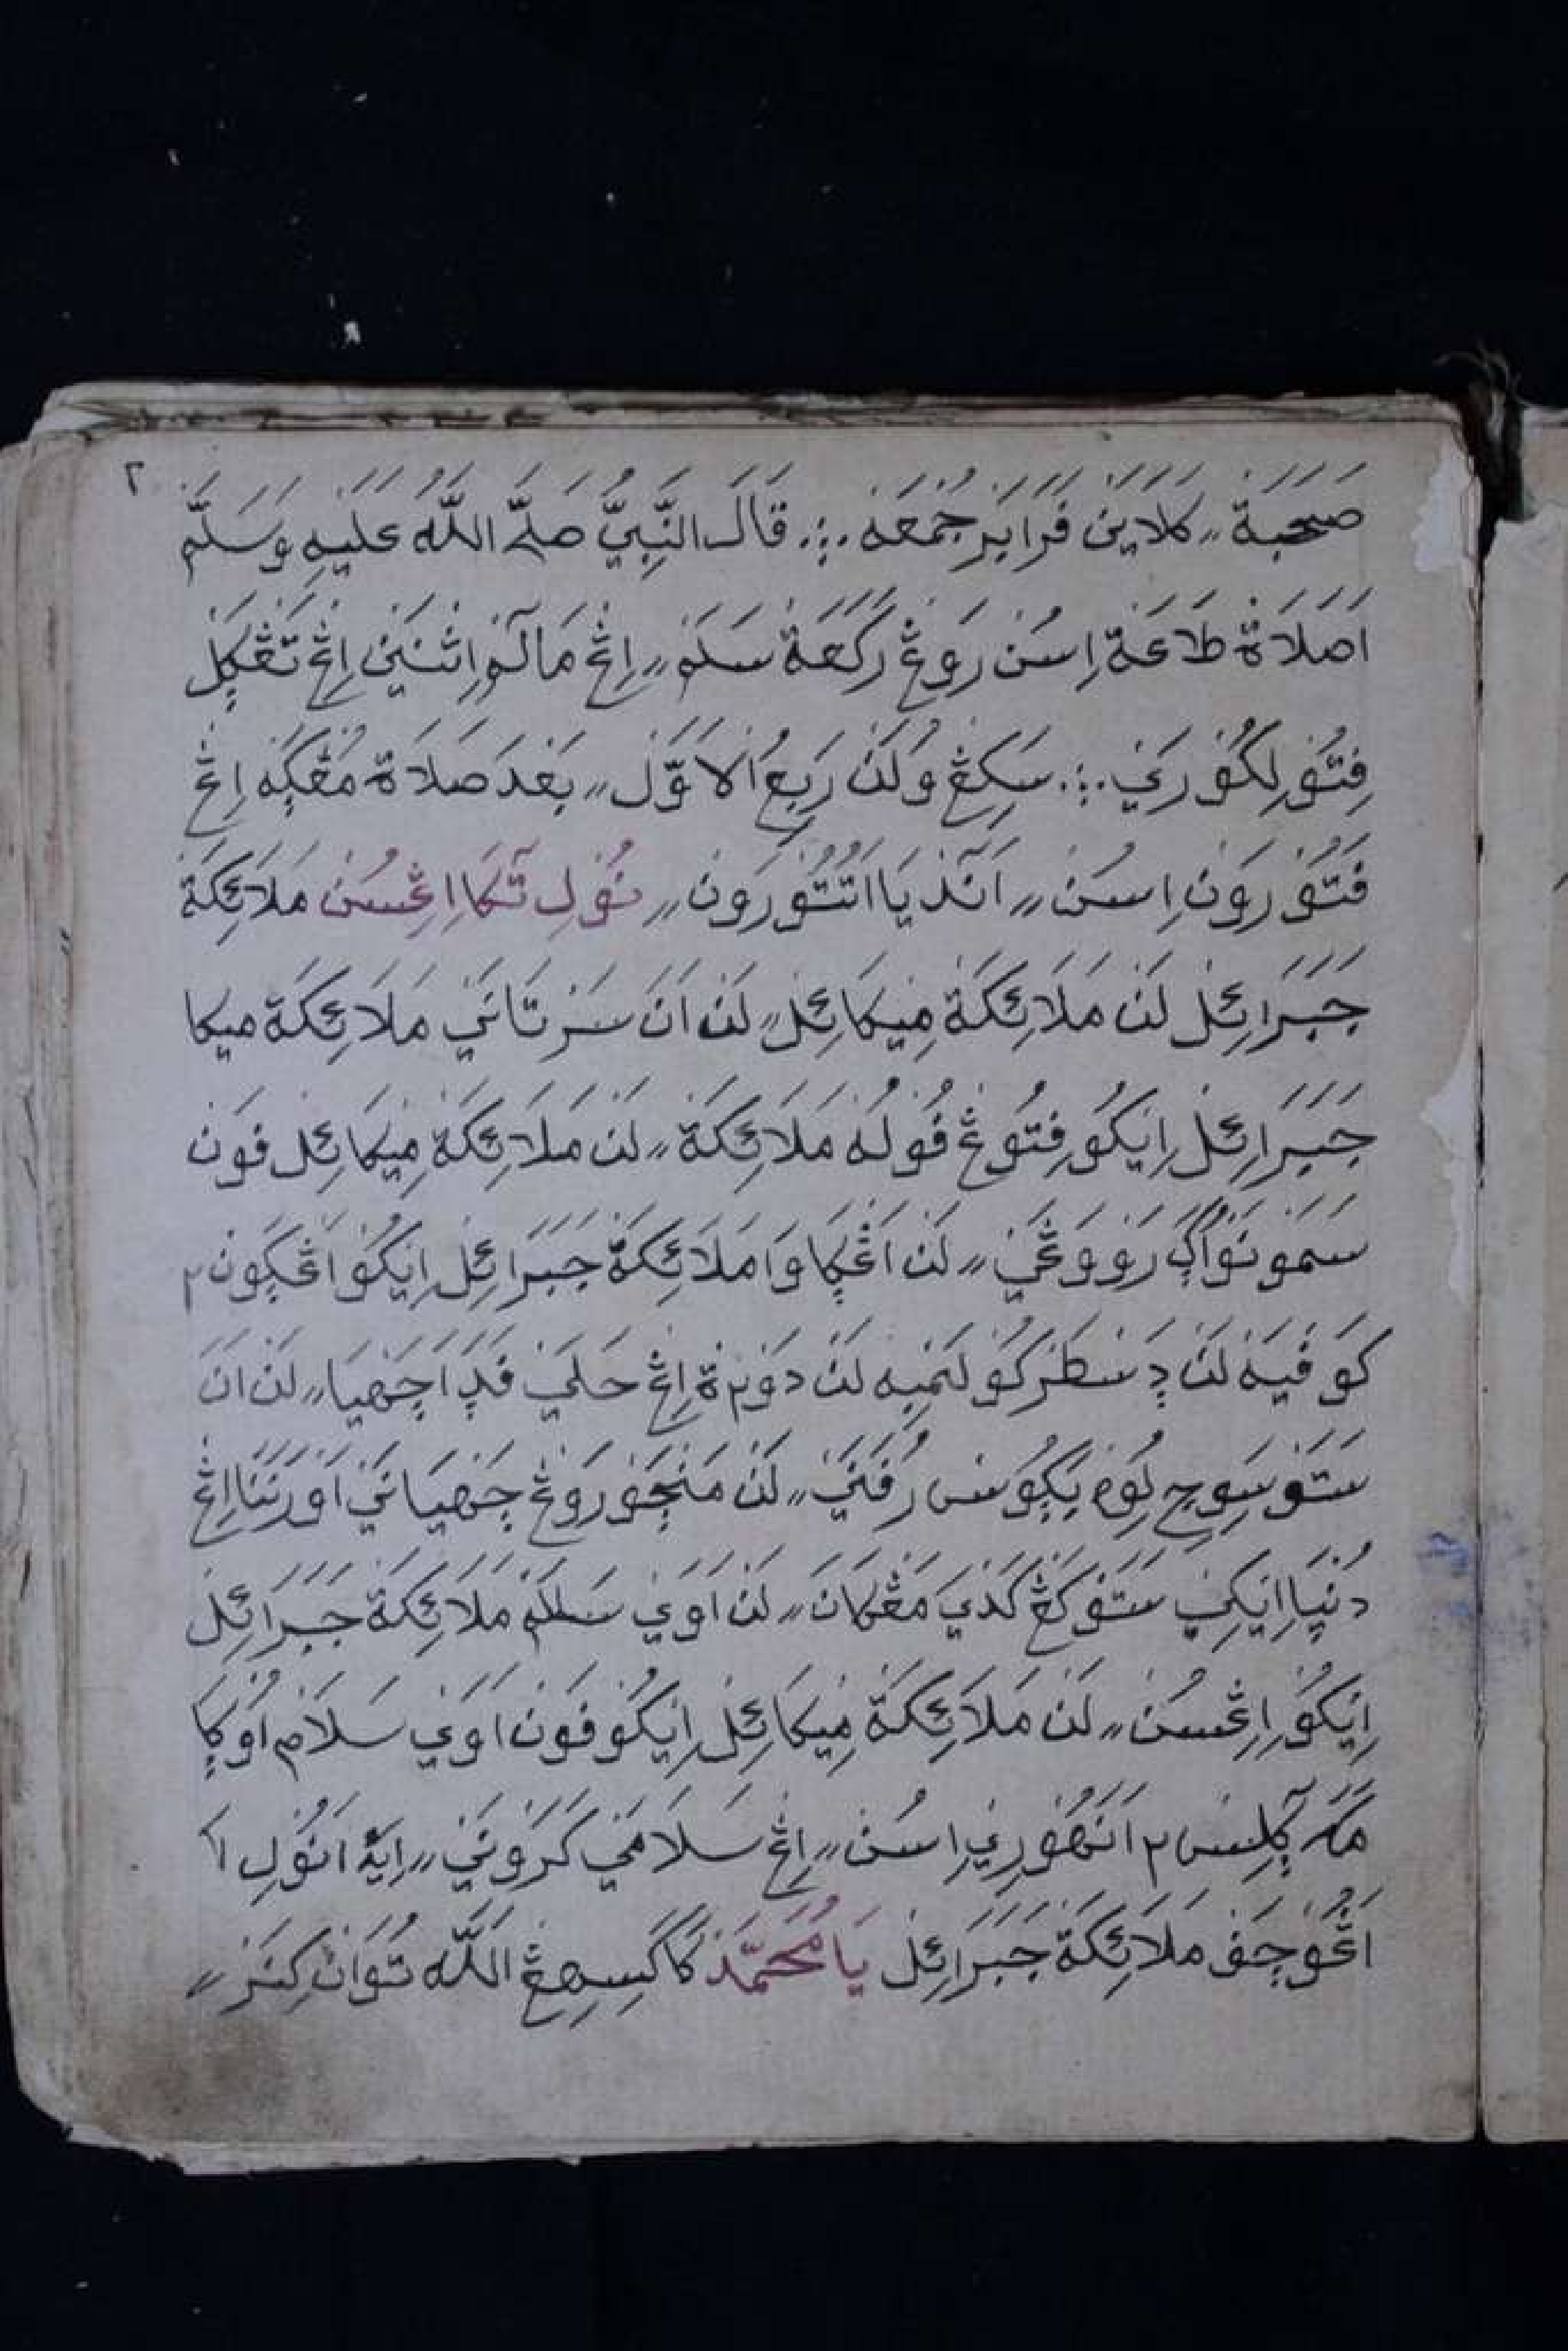 ٢
صَحَبَة״ كَلَايَنْ فَرَايَرْ جُمْعَه ؞ قَالَ النَّبِيُّ صَلَّى اللّٰهُ عَلَيْهِ وَسَلَّمْ
اَصَلَاةْ طَاعَةْ اِسُنْ رَوڠْ رَكَعَةْ سَلَمْ״ اِڠْ مَالَمْ اِثْنَيْنِ اِڠْ تَڠْڮَلْ
فِتُوْلِكُوْرَيْ ؞ سَكِڠْ وُلَنْ رَبِعُ الْاَوَّلْ״ بَعْدَ صَلَاةْ مَڠْكَه اِڠْ
فَتُوْرَونْ اِسُنْ״ اَنْدَيَا اَتُتُوْرَونْ״ نُوْلِ تَكَا اِڠِسُنْ مَلَائِكَةْ
جَبَرَائِلْ لَنْ مَلَائِكَةْ مِيْكَائِلْ״ لَنْ اَنَ سَرْتَانَيْ مَلَائِكَةْ مِيكَا
جَبَرَائِلْ اِيْكُوْ فِتُوڠْ فُوْلُهْ مَلَائِكَةْ״ لَنْ مَلَائِكَةْ مِيْكَائِلْ فَونْ
سَمَونَوْاُڮْ رَووَڠَيْ״ لَنْ اَڠْڮَاوَا مَلَائِكَةْ جَبَرَائِلْ اِيْكُوْ اَڠْڮَونْ٢
كَوفِيَهْ لَنْ دَسْطَرْ كُوْلَمْبِهْ لَنْ دَوْنْ اِڠْ حَلَيْ فَدَ اَجَهْيَا״ لَنْ اَنَ
سَتَوسَوجِ لُوِهْ بَڮُوسْ رُفَنَيْ״ لَنْ مَنْچَوْرَوڠْ چَهْيَانَيْ اَوْرَنَنَا اِڠْ
دُنْيَا اِيْكِيْ سَتَوْكَڠْ كَدَيْ مَڠْكَانَ״ لَنْ اَوَيْ سَلَمْ مَلَائِكَةْ جَبَرَائِلْ
اِيْكُوْ اِڠِسُنْ״ لَنْ مَلَائِكَةْ مِيْكَائِلْ اِيْكُوْ فَونْ اَوَيْ سَلَامْ اَوڮَا
اَنَهُوْرِيْ اِسُنْ״ اِڠْ سَلَامَيْ كَرَوْنَيْ״ اَنُوْلِ
اَڠُوْچَفْ مَلَائِكَةْ جَبَرَائِلْ يَا مُحَمَّدْ كَاكَسِهِڠْ اللّٰهْ تُوَانْ كِنَرْ״